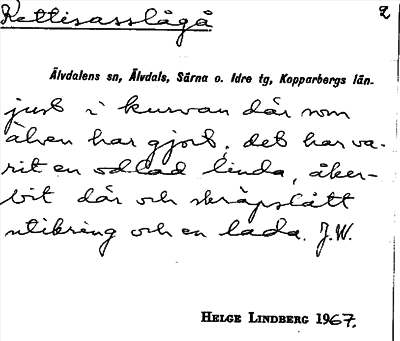 Kettisasslågå
2
Älvdalens sn, Älvdals, Särna o. Idre tg, Kopparbergs län.
just i kurvan där som
älven har gjort, det har va-
rit en odlad linda, åker-
bit där och skräpslått
utikring och en lada. J.W.
HELGE LINDBERG 1967.